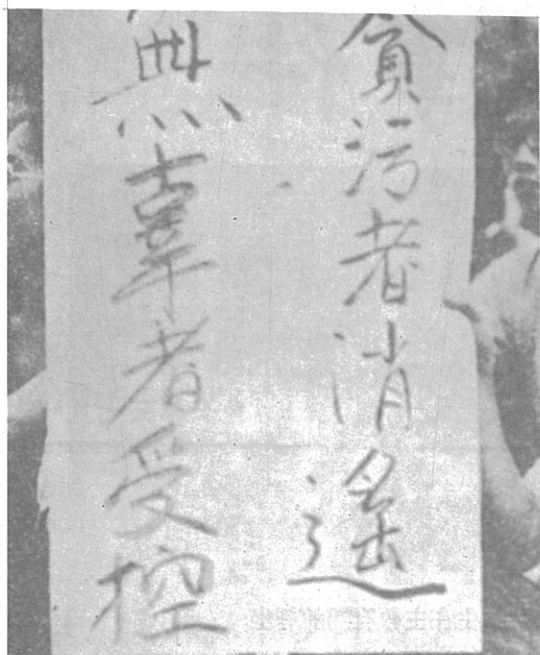 貪污者消遙
無辜者受控